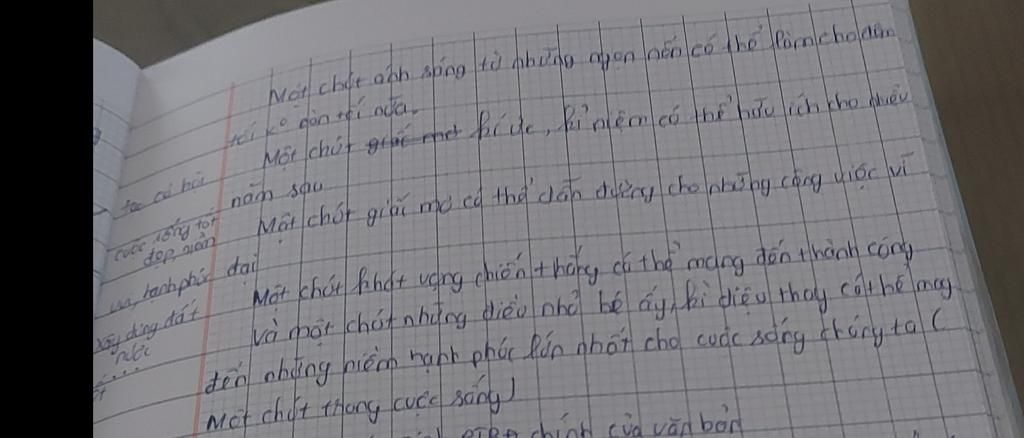 Một chút ánh sáng từ những ngọn nến có thể làm cho đêm
tối ko còn tối nữa.
Một chút kí ức, kỉ niệm có thể hữu ích cho nhiều
năm sau
Một chút giấc mơ có thể dẫn đường cho những công việc vĩ
đại
Một chút khát vọng chiến thắng có thể mang đến thành công
Và một chút những điều nhỏ bé ấy, kì diệu thay có thể mang
đến những niềm hạnh phúc lớn nhất cho cuộc sống chúng ta (
Một chút thong cuộc sống)
chính của văn bản
cơ hội
cuộc sống tốt
đẹp
hạnh phúc
xây dựng đất
nước
....